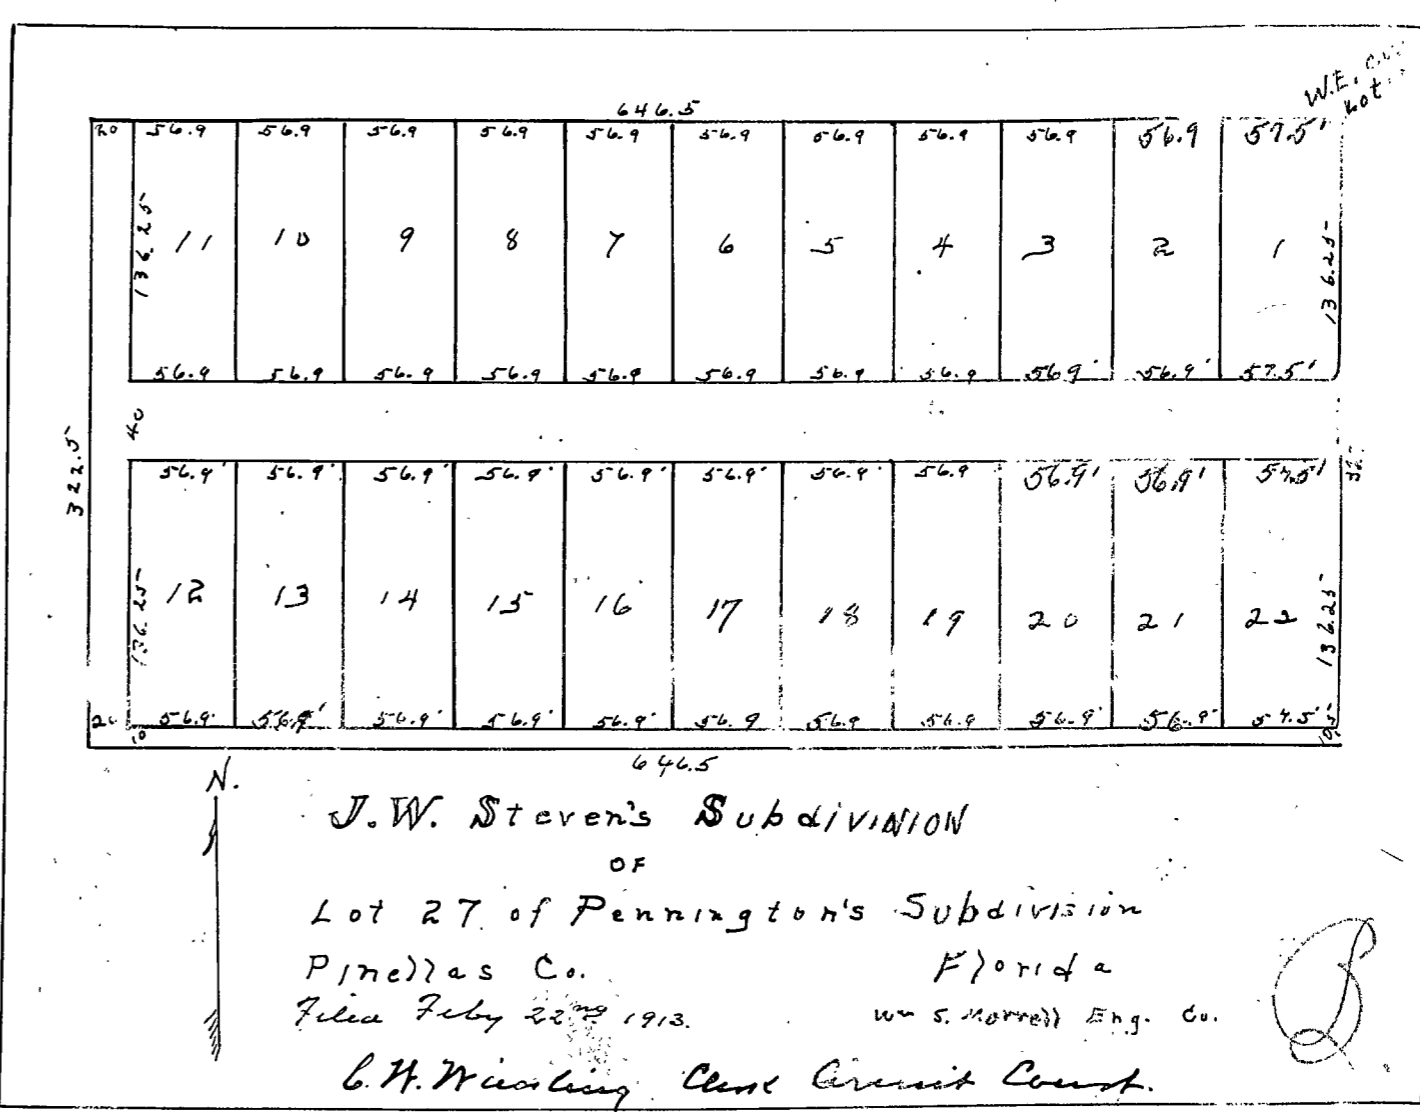 W.E.
Lot
646.5
20 56.9 56.9 56.9 56.9 56.9 56.9 56.9 56.9 56.9 56.9 57.5'
136.25 136.25
11 10 9 8 7 6 5 4 3 2 1
56.9 56.9 56.9 56.9 56.9 56.9 56.9 56.9 56.9' 56.9' 57.5'
40
322.5
56.9' 56.9' 56.9' 56.9' 56.9' 56.9' 56.9' 56.9 56.9' 56.9' 57.5'
136.25 136.25
12 13 14 15 16 17 18 19 20 21 22
20 56.9' 56.9' 56.9' 56.9' 56.9' 56.9 56.9 56.9 56.9' 56.9' 57.5'
10 10.5'
646.5
N.
J.W. Steven's Subdivision
OF
Lot 27 of Pennington's Subdivision
Pinellas Co. Florida
Filed Feby 22nd 1913. Wm S. Morrell Eng. Co.
C.W. Wiecking Clerk Circuit Court.